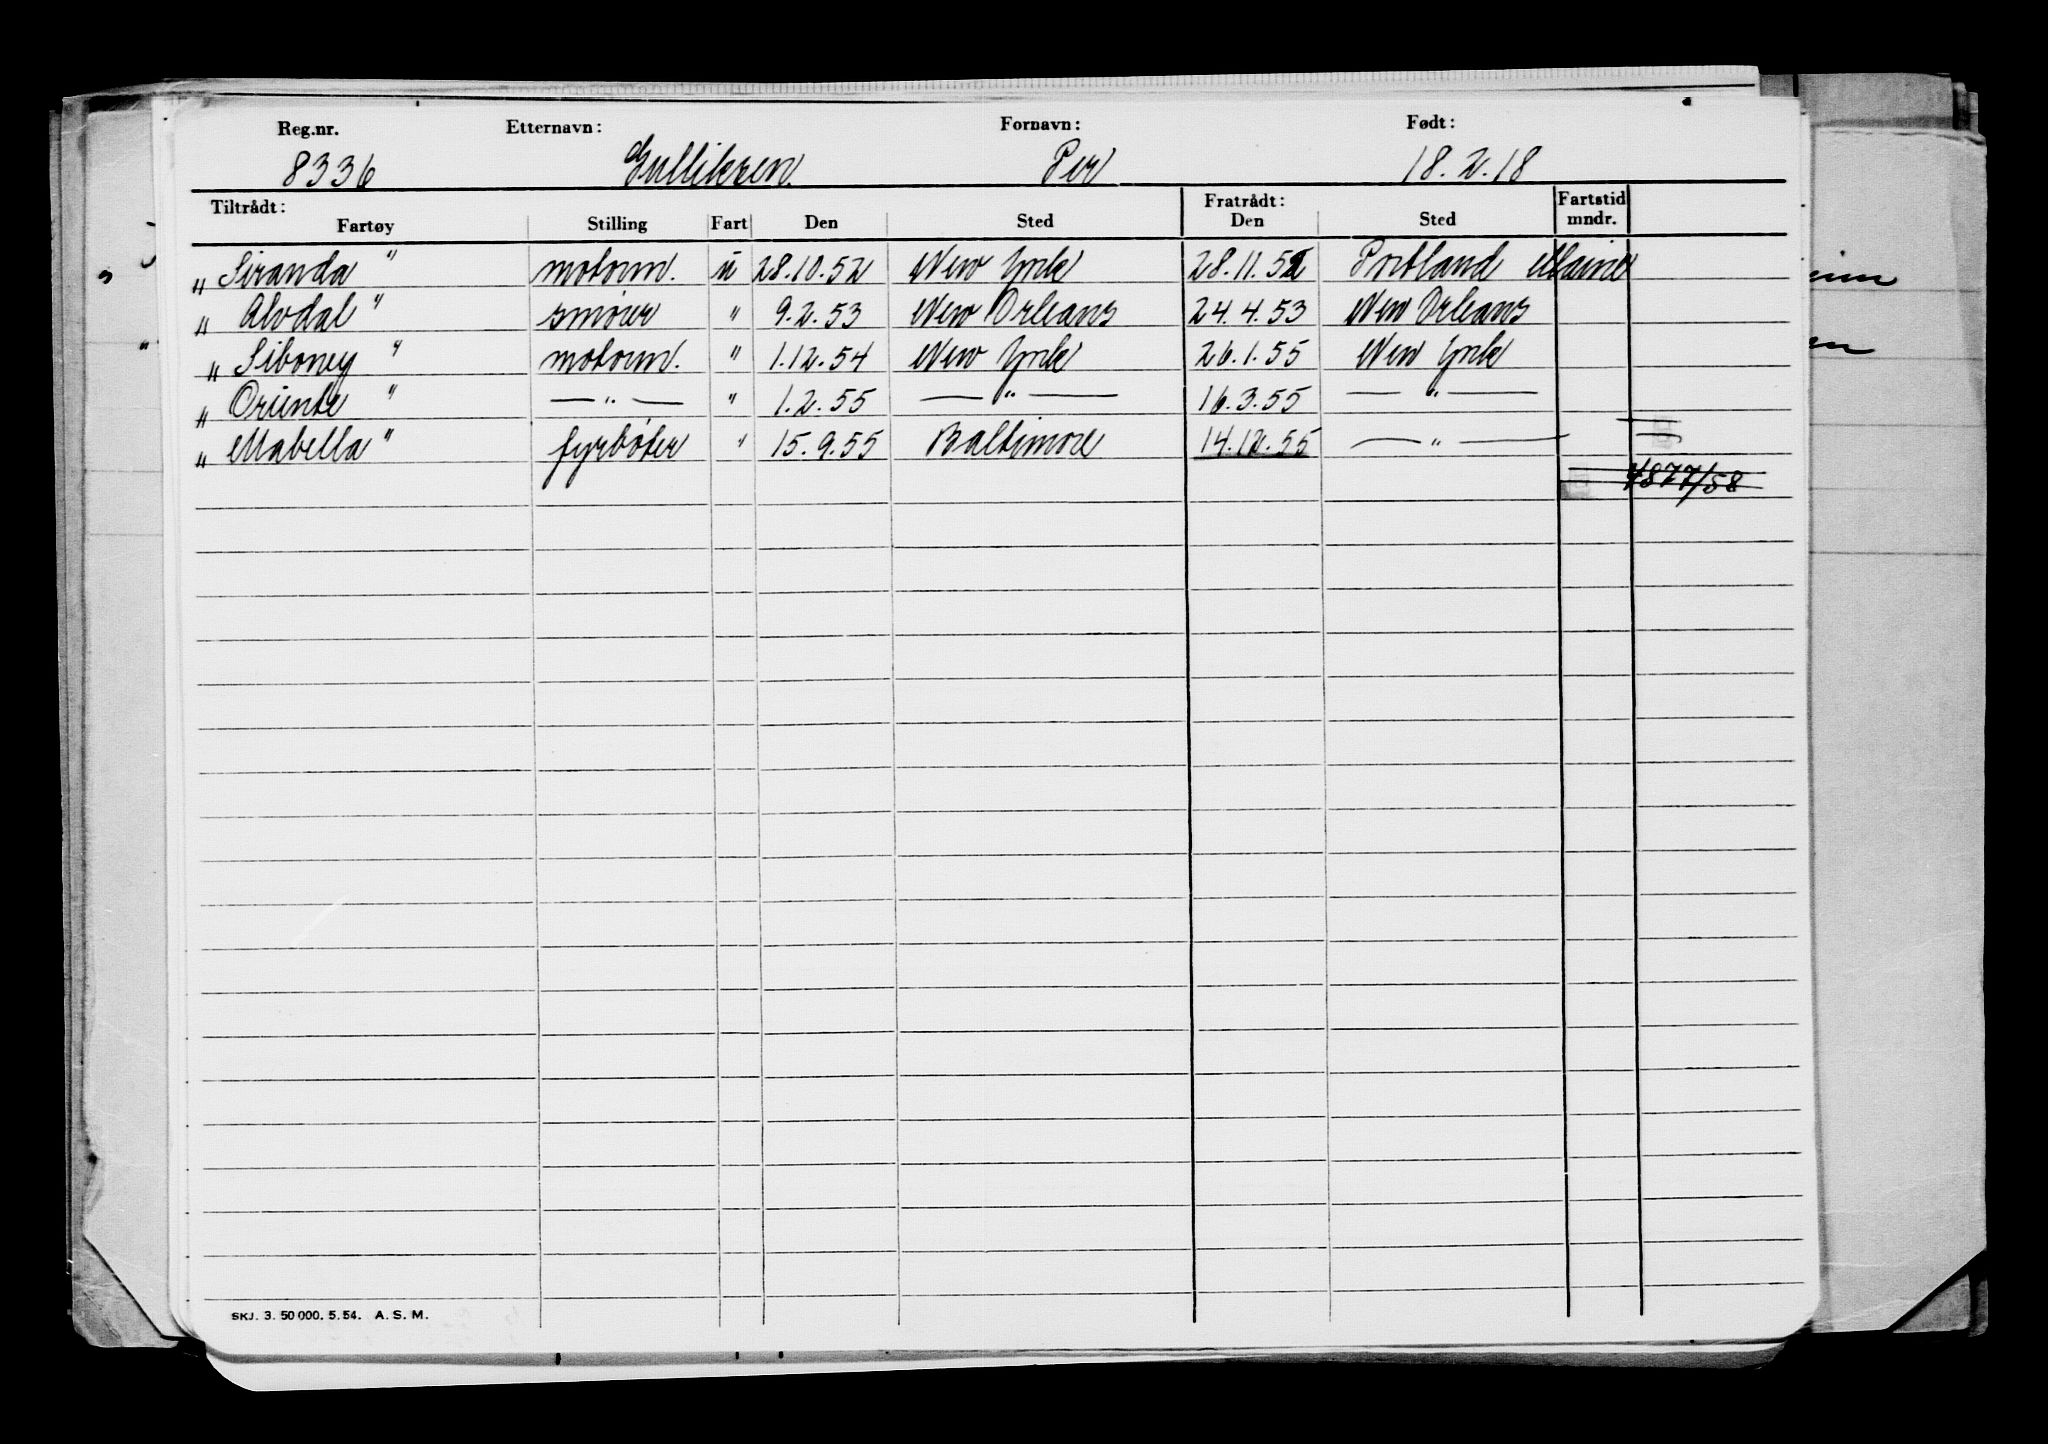 Reg.nr. Etternavn: Fornavn: Født:
8336 Gulliksen Per 18.2.18
Tiltrådt: Fratrådt: Fartstid
Fartøy Stilling Fart Den Sted Den Sted mndr.
"Siranda" motorm. u 28.10.52 New York 28.11.52 Portland Maine
"Alvdal" smører " 9.2.53 New Orleans 24.4.53 New Orleans
"Siboney" motorm. " 1.12.54 New York 26.1.55 New York
"Oriente" — " — " 1.2.55 — " — 16.3.55 — " —
"Mabella" fyrbøter " 15.9.55 Baltimore 14.12.55 — " —
4877/58
SKJ. 3. 50 000. 5. 54. A. S. M.